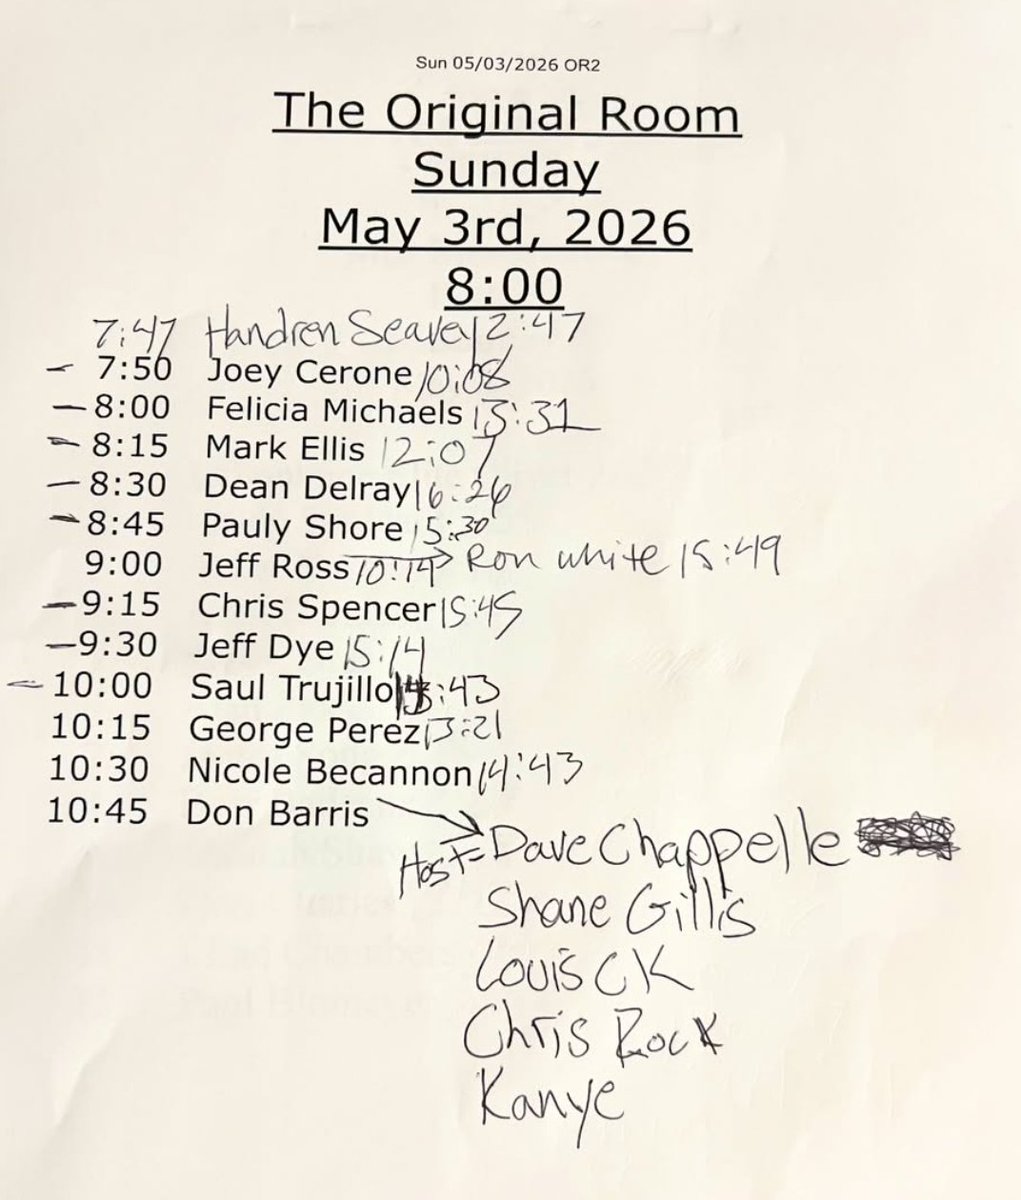 Sun 05/03/2026 OR2
The Original Room
Sunday
May 3rd, 2026
8:00
7:47 Handren Seavey 12:47
— 7:50 Joey Cerone 10:08
— 8:00 Felicia Michaels 13:31
— 8:15 Mark Ellis 12:07
— 8:30 Dean Delray 16:26
— 8:45 Pauly Shore 15:30
9:00 Jeff Ross 10:14 → Ron white 15:49
— 9:15 Chris Spencer 15:45
— 9:30 Jeff Dye 15:14
— 10:00 Saul Trujillo :43
10:15 George Perez 13:21
10:30 Nicole Becannon 14:43
10:45 Don Barris →
Host = Dave Chappelle
Shane Gillis
Louis CK
Chris Rock
Kanye